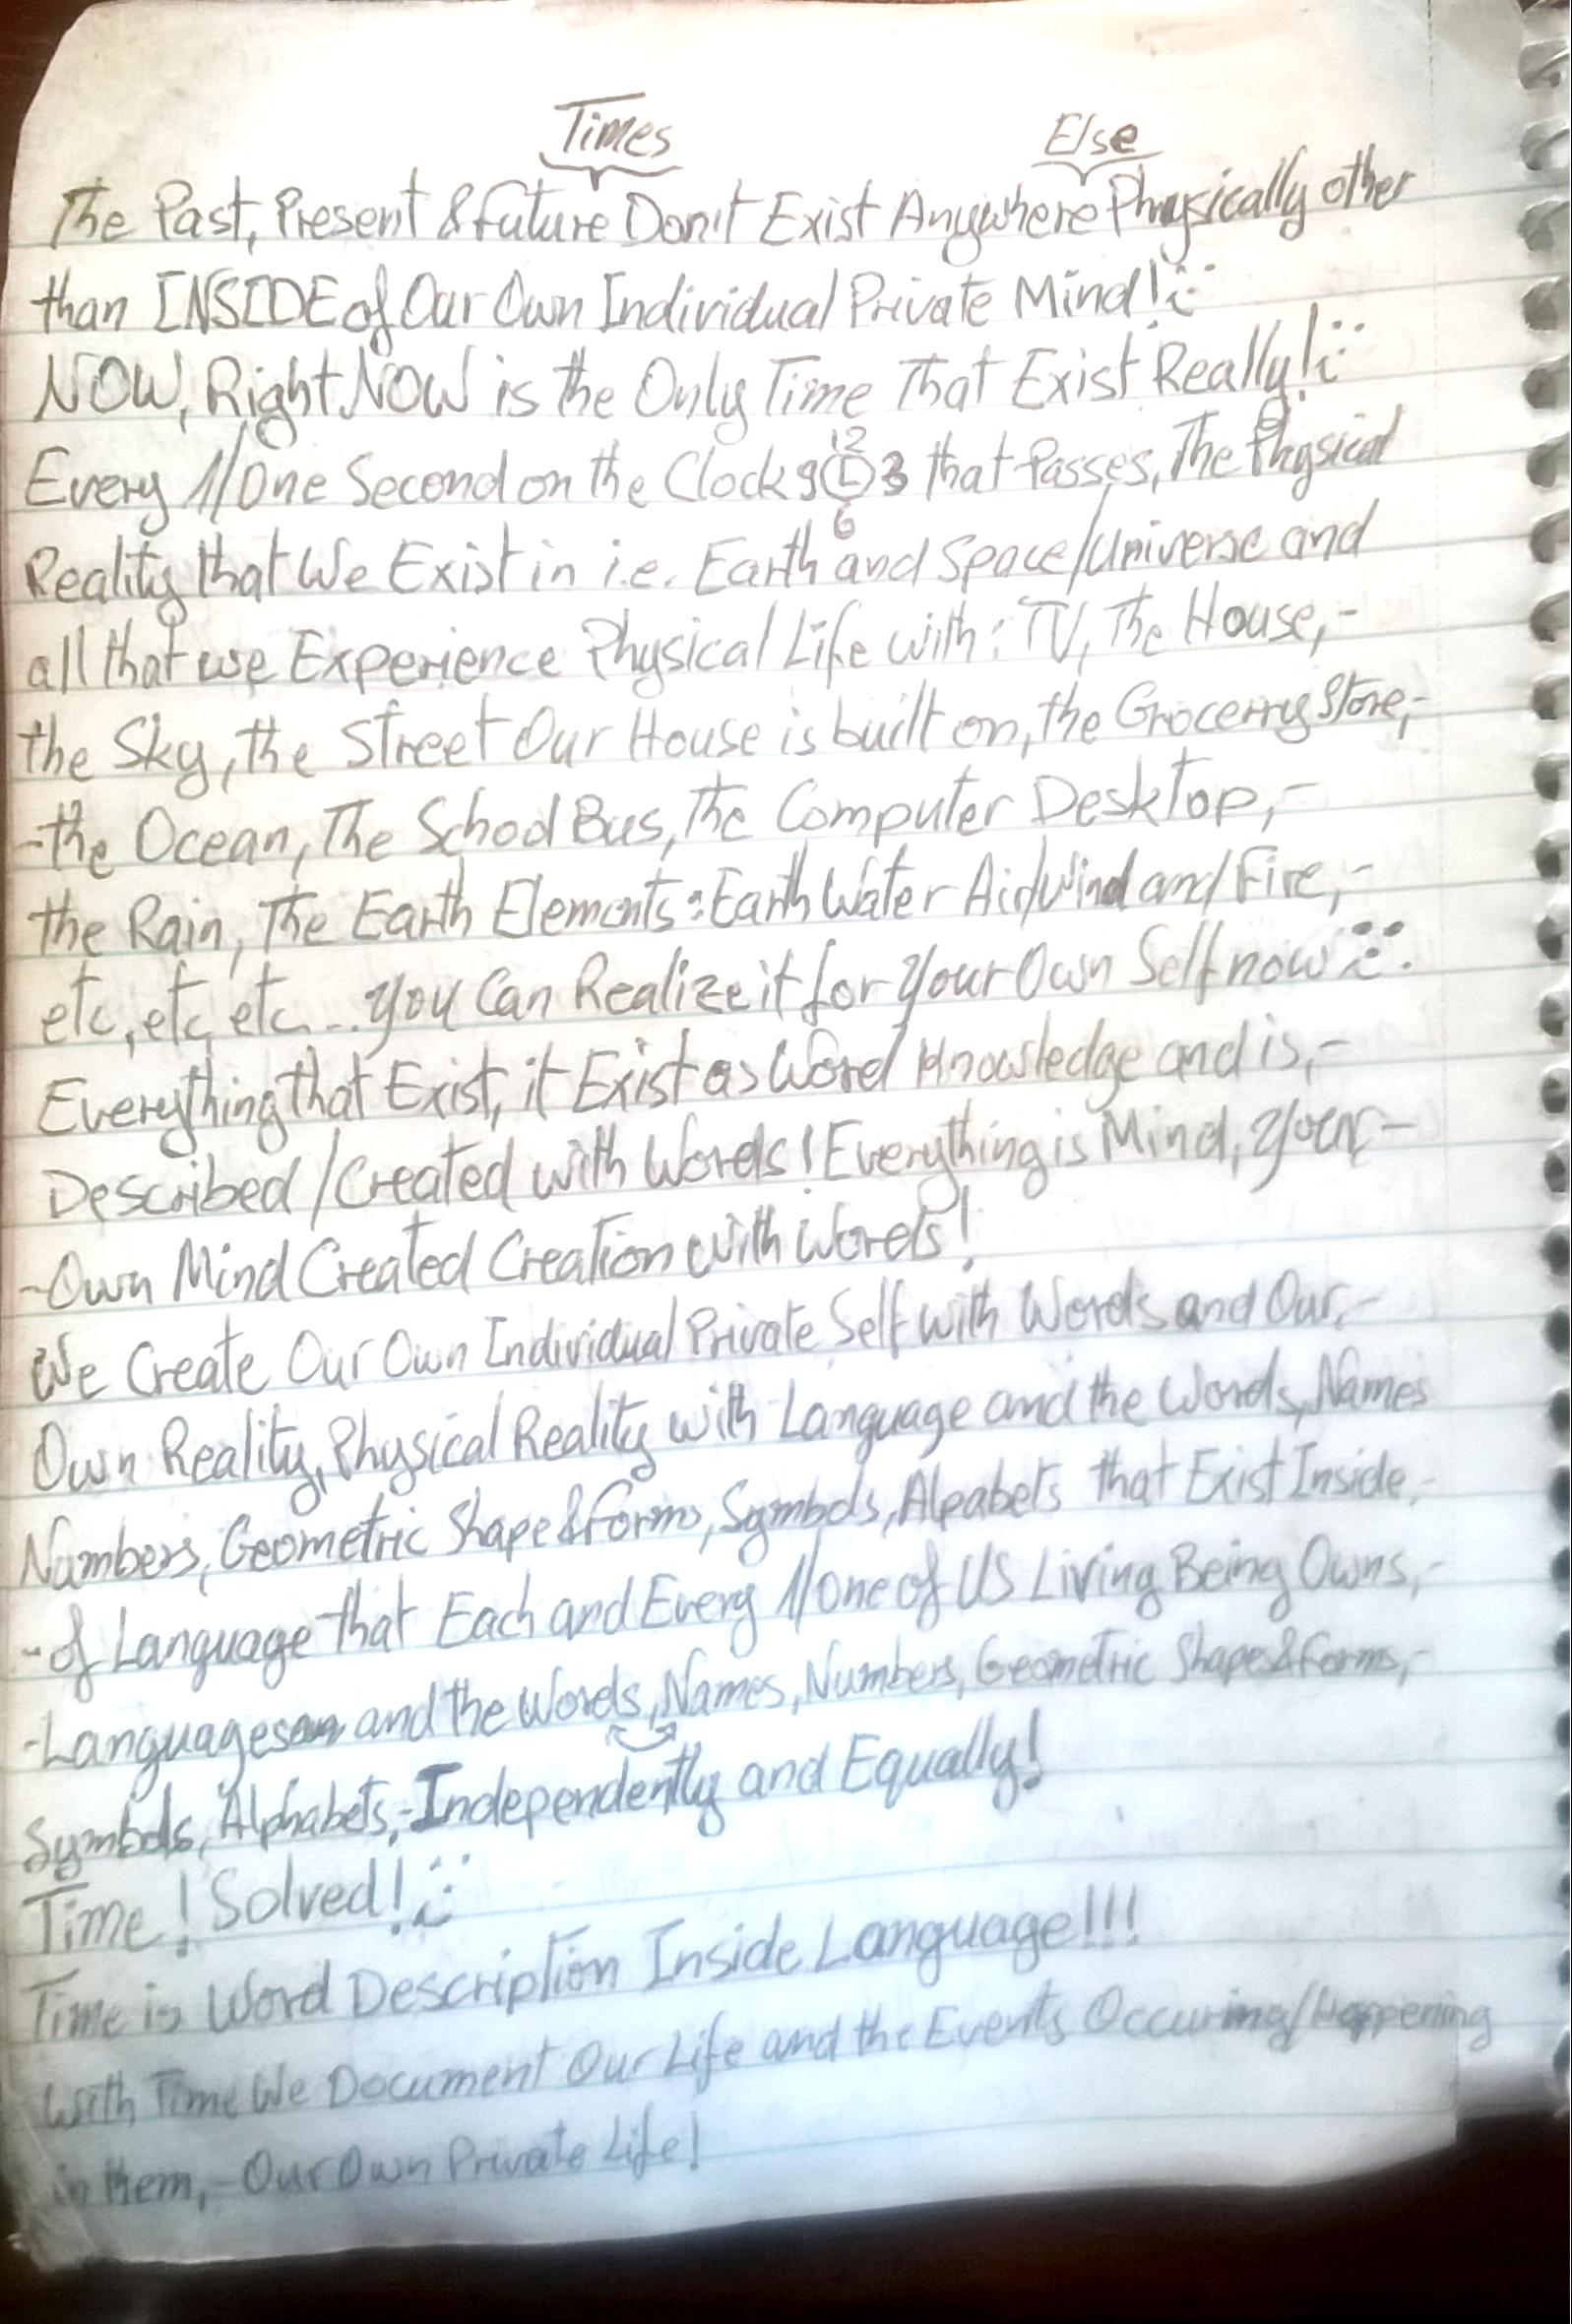 Times Else
The Past, Present & Future Don't Exist Anywhere Physically other
than INSIDE of Our Own Individual Private Mind!
NOW, Right NOW is the Only Time That Exist Really!
12
Every 1/One Second on the Clock 9 3 that Passes, The Physical
6
Reality that We Exist in i.e. Earth and Space/Universe and
all that we Experience Physical Life with: TV, The House,-
the Sky, the Street Our House is built on, the Grocerry Store,-
-the Ocean, The School Bus, The Computer Desktop,-
the Rain, The Earth Elements: Earth Water Air/Wind and Fire,-
etc, etc, etc... you Can Realize it for your Own Self now .
Everything that Exist, it Exist as Word Knowledge and is,-
Described/Created with Words! Everything is Mind, your,-
-Own Mind Created Creation with Words!
We Create Our Own Individual Private Self with Words and Our,-
Own Reality, Physical Reality with Language and the Words, Names
Numbers, Geometric Shape & Forms, Symbols, Alpabets that Exist Inside,-
-of Language that Each and Every 1/One of US Living Being Owns,-
-Languages and the Words, Names, Numbers, Geometric Shape & Forms,-
Symbols, Alphabets,-Independently and Equally!
Time! Solved!
Time is Word Description Inside Language!!!
With Time We Document Our Life and the Events Occuring/Happening
in them,- Our Own Private Life!